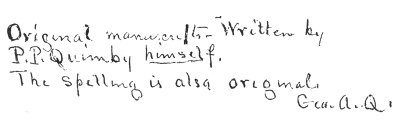 Original manuscript - Written by
P.P. Quimby himself.
The spelling is also original.
Geo. A. Q.